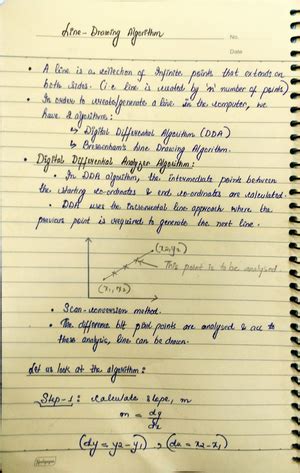 Line - Drawing Algorithm
No.
Date
• A line is a collection of Infinite points that extends on
both sides. (i.e line is created by 'n' number of points)
• In order to create/generate a line in the computer, we
have 2 algorithms:
↳ Digital Differential Algorithm (DDA)
↳ Bressenham's Line Drawing Algorithm.
• Digital Differential Analyzer Algorithm:
• In DDA algorithm, the intermediate points between
the starting co-ordinates & end co-ordinates are calculated.
• DDA uses the Incremental line approach where the
previous point is required to generate the next line.
(x2,y2)
This point is to be analyzed.
(x1, y2)
• Scan-conversion method.
• The difference b/t pixel points are analyzed & acc to
these analysis, line can be drawn.
Let us look at the algorithm:
Step-1: Calculate slope, m
m = dy
dx
(dy = y2-y1) , (dx = x2-x1)